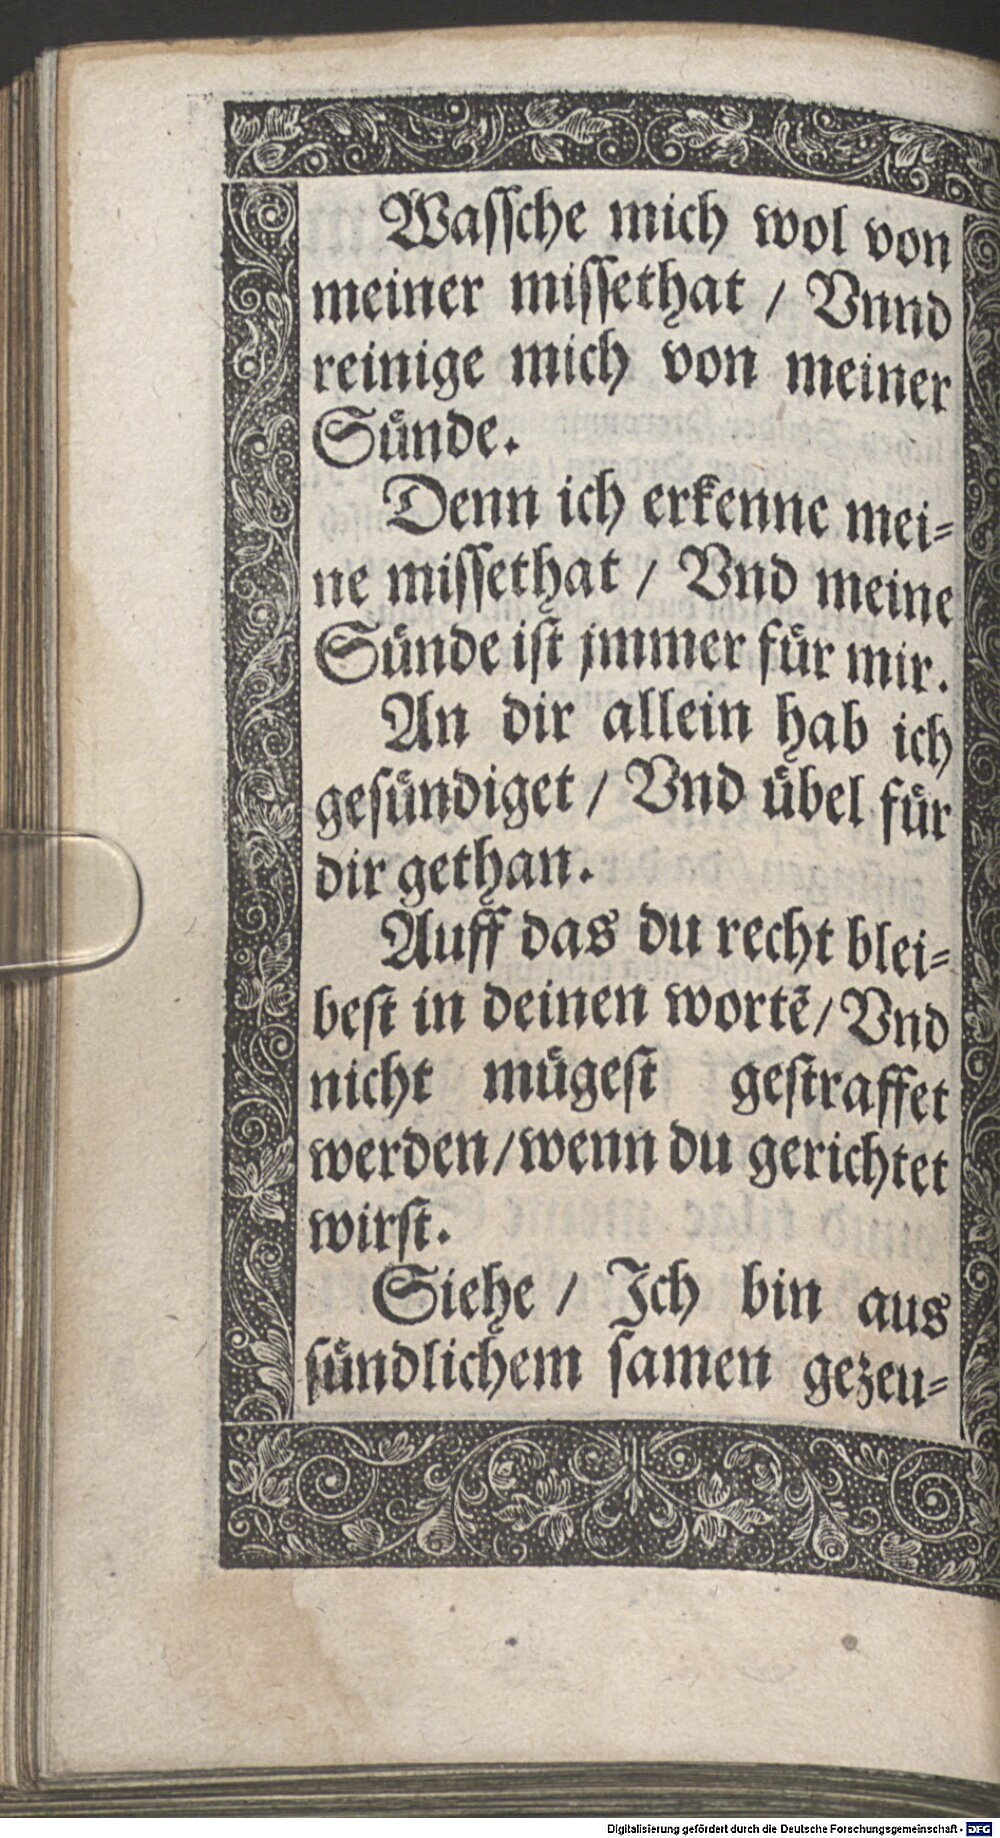 Waſſche mich wol von
meiner miſſethat / Vnnd
reinige mich von meiner
Suͤnde.
Denn ich erkenne mei⸗
ne miſſethat / Vnd meine
Suͤnde iſt jmmer fuͤr mir.
An dir allein hab ich
geſuͤndiget / Vnd uͤbel fuͤr
dir gethan.
Auff das du recht blei⸗
beſt in deinen wortẽ / Vnd
nicht muͤgeſt geſtraffet
werden / wenn du gerichtet
wirſt.
Siehe / Ich bin aus
ſuͤndlichem ſamen gezeu⸗
Digitalisierung gefördert durch die Deutsche Forschungsgemeinschaft - DFG